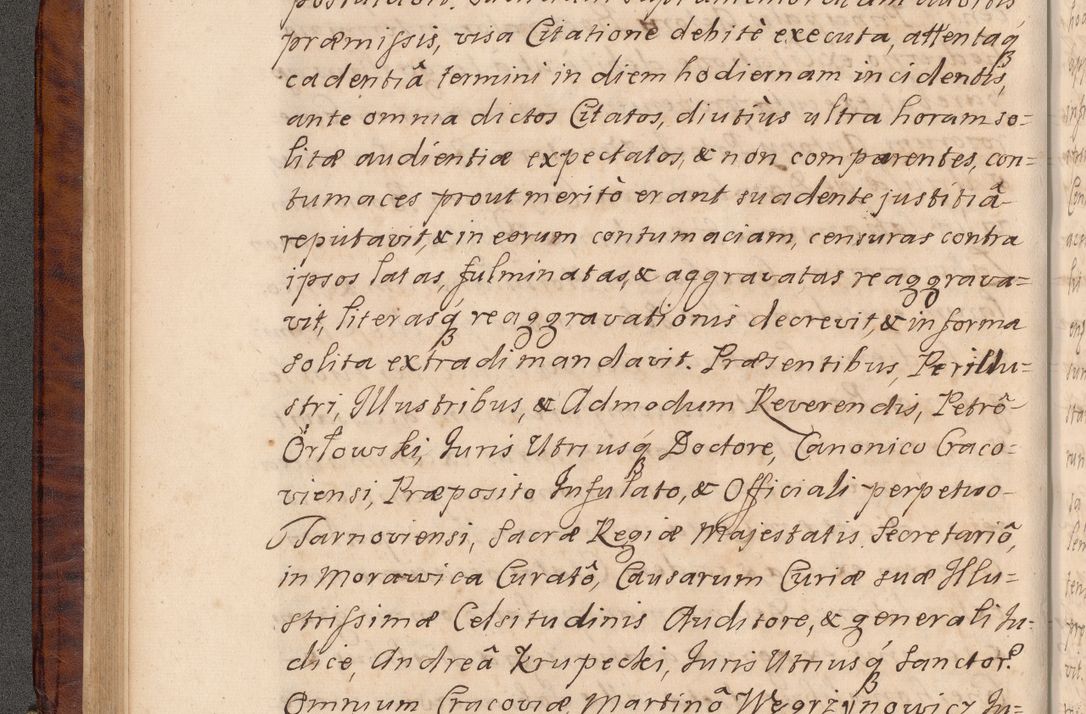 præmissis, visa Citatione debitè executa, attentaq́ꝫ
cadentiâ termini in diem hodiernam incidentis,
ante omnia dictos Citatos, diutiùs ultra horam so=
litæ audientiæ expectatos, & non comparentes, con=
tumaces prout meritò erant suadente justitiâ
reputavit, & in eorum contumaciam, censuras contra
ipsos latas, fulminatas, & aggravatas reaggrava=
vit, literasq́ꝫ reaggravationis decrevit, & in forma
solita extradi mandavit. Præsentibus, Perillu=
stri, Illustribus, & Admodum Reverendis, Petrô
Orłowski, Juris Utriusq́ꝫ Doctore, Canonico Craco=
viensi, Præposito Infulato, & Officiali perpetuo
Tarnoviensi, Sacræ Regiæ Majestatis Secretariô,
in Morawica Curatô, Causarum Curiæ suæ Illu=
strissimæ Celsitudinis Auditore, & generali Ju=
dice, Andreâ Krupecki, Juris Utriusq́ꝫ Sanctor.
Omnium Cracoviæ, Martinô Węgrzynowicz Ju=